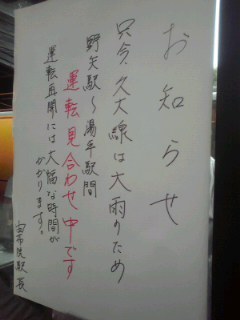 お知らせ
只今、久大線は大雨のため
野矢駅～湯平駅間
運転見合わせ中です
運転再開には大幅な時間が
かかります。
駅長